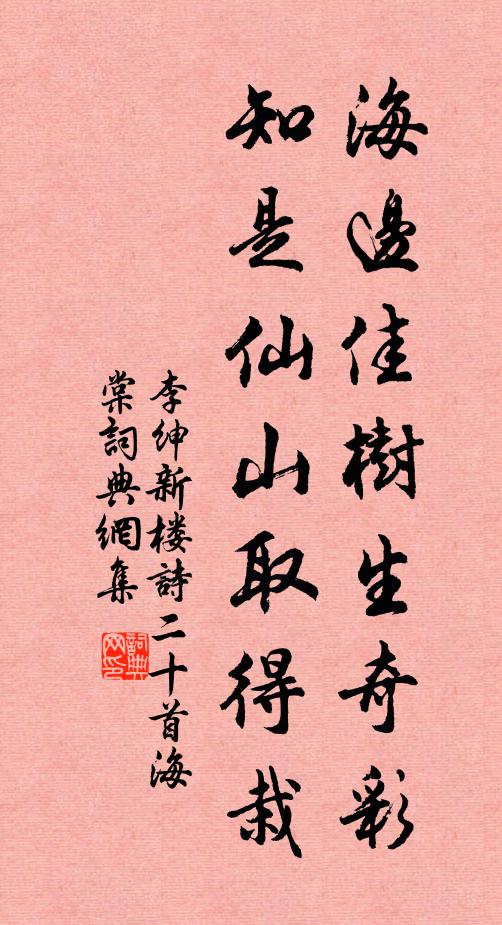 海邊佳樹生奇彩
知是仙山取得栽
李紳新楼詩二十首海
棠詞典網集
詞典
网印